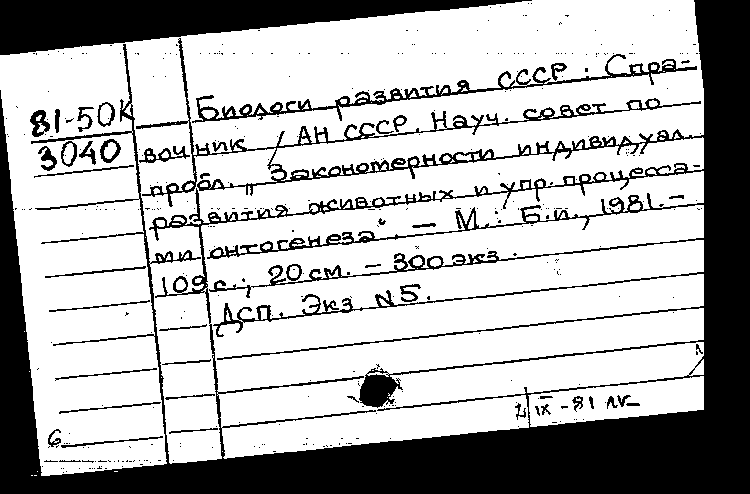 81-50К
3040
Биологи развития СССР : Спра-
вочник / АН СССР. Науч. совет по
пробл. „Закономерности индивидуал.
развития животных и упр. процесса-
ми онтогенеза“. — М. : Б.и., 1981. –
109 с. ; 20 см. – 300 экз.
ДСП. Экз. N 5.
6
IX - 81